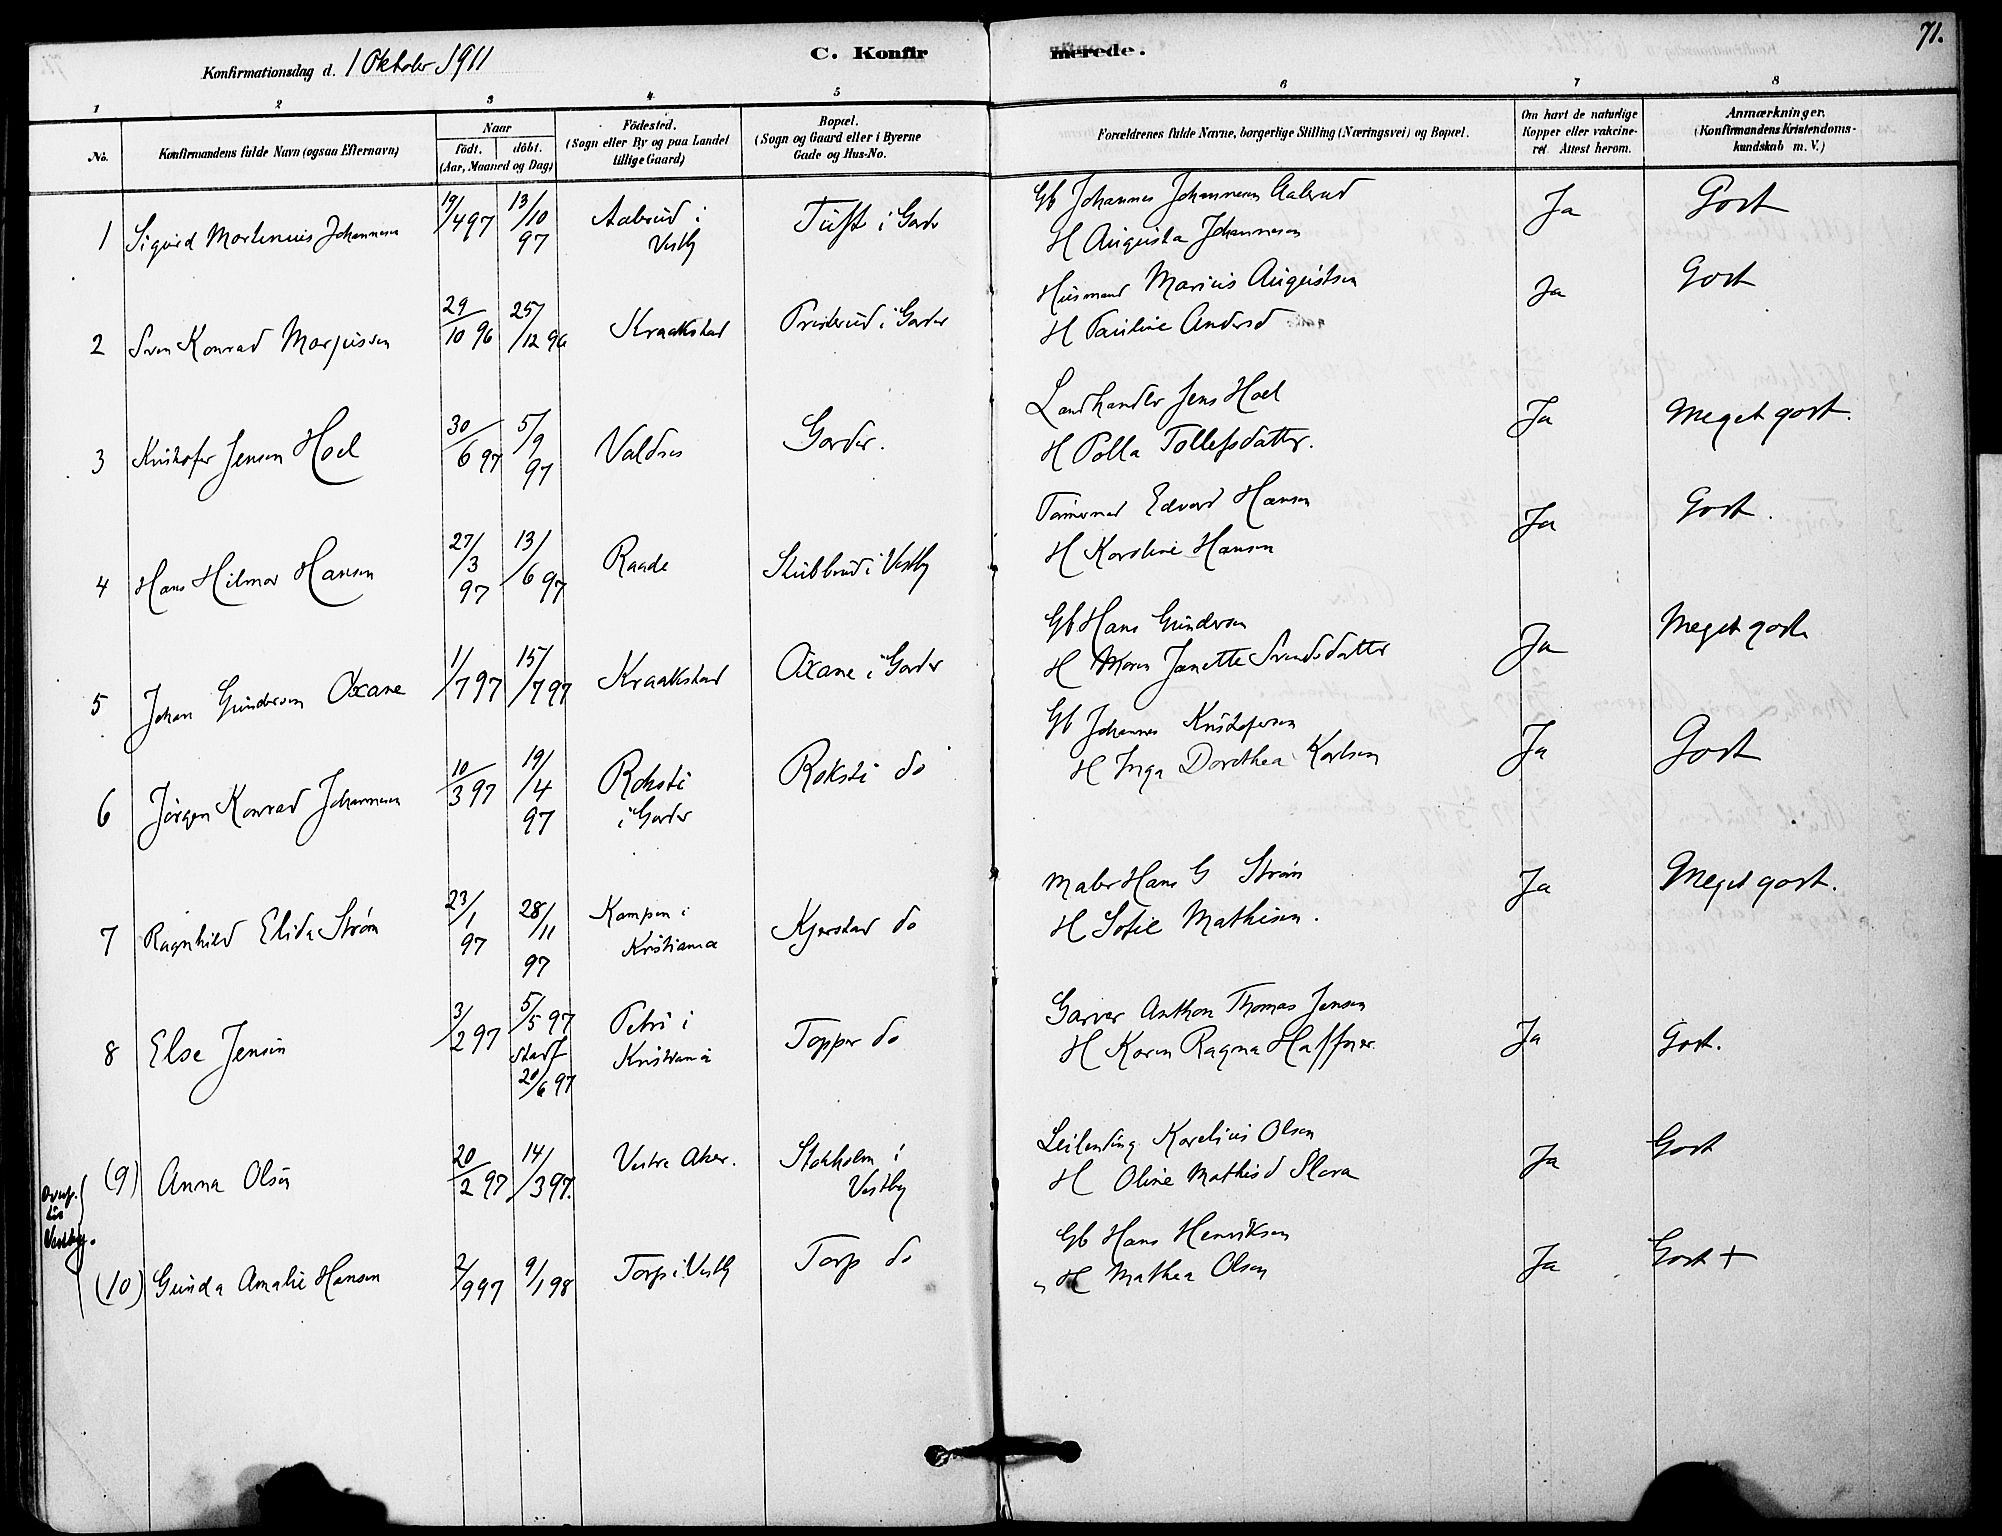 71.
Konfirmationsdag d. 1 Oktober 1911
C. Konfirmerede.
1 2 3 4 5 6 7 8
No.
Konfirmandens fulde Navn (ogsaa Efternavn)
Naar
født. døbt.
(Aar, Maaned og Dag)
Fødested.
(Sogn eller By og paa Landet
tillige Gaard)
Bopæl.
(Sogn og Gaard eller i Byerne
Gade og Hus-No.
Forældrenes fulde Navne, borgerlige Stilling (Næringsvei) og Bopæl.
Om havt de naturlige
Kopper eller vakcine-
ret. Attest herom.
Anmærkninger.
(Konfirmandens Kristendoms-
kundskab m. V.)
1 Sigurd Martinius Johannesen 19/4 97 13/10 97 Aalerud i Vestby Tuft i Garder
Gb Johannes Johannesen Aalerud
H Augusta Johannesen
Ja Godt
2 Sven Konrad Marjussen 29/10 96 25/12 96 Kraakstad Presterud i Garder
Husmand Marius Augustsen
H Pauline Andersd
Ja Godt
3 Kristofer Jensen Hoel 30/6 97 5/9 97 Valdres Garder.
Landhandler Jens Hoel
H Polla Tollefsdatter.
Ja Meget godt.
4 Hans Hilmar Hansen 27/3 97 13/6 97 Raade Stubberud i Vestby
Tømmermd Edvard Hansen
H Karoline Hansen
Ja Godt.
5 Johan Gundersen Oxane 1/1 97 15/7 97 Kraakstad Oxane i Garder
Gb Hans Gundersen
H Maren Janette Svendsdatter
Ja Meget godt
6 Jørgen Konrad Johannesen 10/3 97 19/4 97 Roksti i Garder Roksti do
Gb Johannes Kristofersen
H Inga Dorothea Karlsen
Ja Godt
7 Ragnhild Elida Strøm 23/1 97 28/11 97 Kampen i Kristiania Kjerstad do
Maler Hans G Strøm
H Sofie Mathisen.
Ja Meget godt.
8 Else Jensen 3/2 97 5/5 97 stadf 20/6 97 Petri i Kristiania Topper do
Garver Anthon Thomas Jensen
H Karen Ragna Haffner
Ja Godt.
(9) Anna Olsen 20/2 97 14/3 97. Vestre Aker. Stokholm i Vestby
Leilending Karelius Olsen
H Oline Mathisd Slora
Ja Godt
overf.
til
Vestby.
(10) Gunda Amalie Hansen 2/9 97 9/1 98 Torp i Vestby Torp do
Gb Hans Henriksen
H Mathea Olsen
Ja Godt +